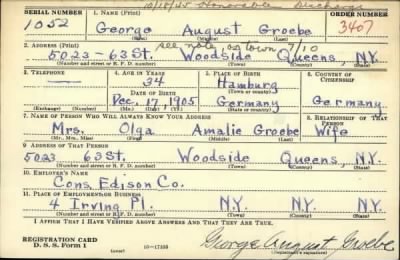 10/18/45 Honorable Discharge
SERIAL NUMBER 1. NAME (Print) ORDER NUMBER
1052 George August Groebe 3407
(First) (Middle) (Last)
see note on town 7/10
2. ADDRESS (Print)
5023-63 St. Woodside Queens, N.Y.
(Number and street or R. F. D. number) (Town) (County) (State)
3. TELEPHONE 4. AGE IN YEARS 5. PLACE OF BIRTH 6. COUNTRY OF CITIZENSHIP
— 34 Hamburg
DATE OF BIRTH (Town or county)
Dec. 17, 1905 Germany Germany
(Exchange) (Number) (Mo.) (Day) (Yr.) (State or country)
7. NAME OF PERSON WHO WILL ALWAYS KNOW YOUR ADDRESS 8. RELATIONSHIP OF THAT PERSON
Mrs. Olga Amalie Groebe Wife
(Mr., Mrs., Miss) (First) (Middle) (Last)
9. ADDRESS OF THAT PERSON
5023 63 St. Woodside Queens, N.Y.
(Number and street or R. F. D. number) (Town) (County) (State)
10. EMPLOYER'S NAME
Cons. Edison Co.
11. PLACE OF EMPLOYMENT OR BUSINESS
4 Irving Pl. N.Y. N.Y. N.Y.
(Number and street or R. F. D. number) (Town) (County) (State)
I AFFIRM THAT I HAVE VERIFIED ABOVE ANSWERS AND THAT THEY ARE TRUE.
REGISTRATION CARD
D. S. S. Form 1 (over) George August Groebe
(Registrant's signature)